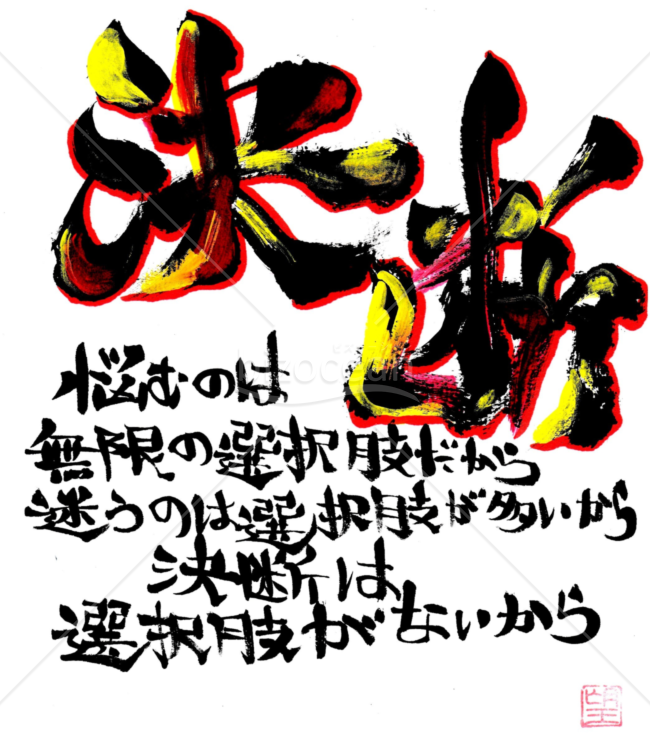 決断
悩むのは
無限の選択肢だから
迷うのは選択肢が多いから
決断は
選択肢がないから
望